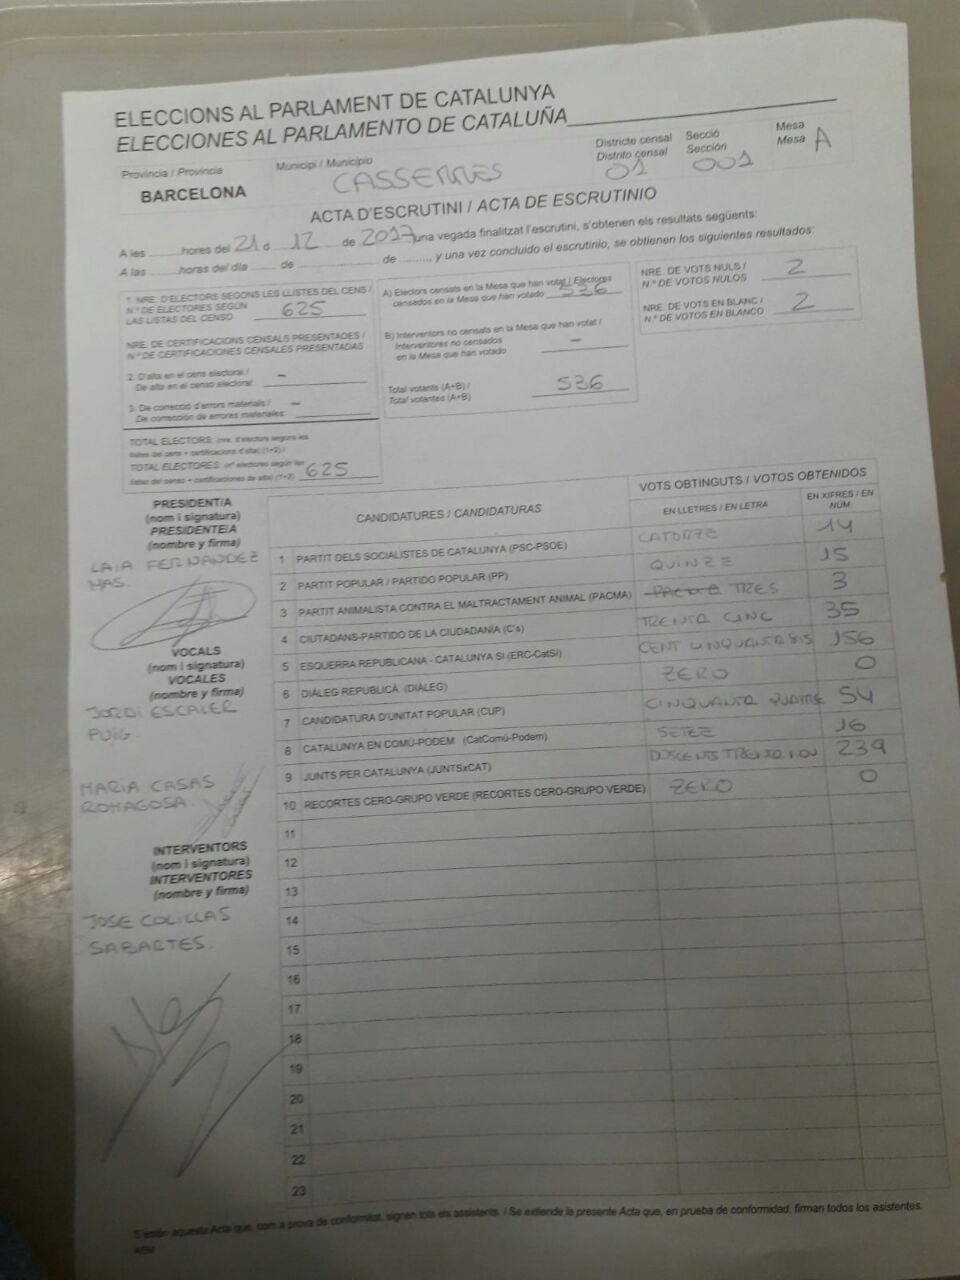 ELECCIONS AL PARLAMENT DE CATALUNYA
ELECCIONES AL PARLAMENTO DE CATALUÑA
Província / Provincia
BARCELONA
Municipi / Municipio
CASSERRES
Districte censal
Distrito censal
01
Secció
Sección
001
Mesa
Mesa A
ACTA D'ESCRUTINI / ACTA DE ESCRUTINIO
A les ........ hores del 21 d ... 12 ... de 2017 una vegada finalitzat l'escrutini, s'obtenen els resultats següents:
A las ........ horas del día ...... de .................. de ........, y una vez concluido el escrutinio, se obtienen los siguientes resultados:
1. NRE. D'ELECTORS SEGONS LES LLISTES DEL CENS /
N.º DE ELECTORES SEGÚN
LAS LISTAS DEL CENSO 625
NRE. DE CERTIFICACIONS CENSALS PRESENTADES /
N.º DE CERTIFICACIONES CENSALES PRESENTADAS
2. D'alta en el cens electoral /
De alta en el censo electoral: –
3. De correcció d'errors materials / –
De corrección de errores materiales:
TOTAL ELECTORS: (nre. d'electors segons les
llistes del cens + certificacions d'alta) (1+2) /
TOTAL ELECTORES: (nº electores según las
listas del censo + certificaciones de alta) (1+2) 625
A) Electors censats en la Mesa que han votat / Electores
censados en la Mesa que han votado 536
B) Interventors no censats en la Mesa que han votat /
Interventores no censados
en la Mesa que han votado –
Total votants (A+B) /
Total votantes (A+B) 536
NRE. DE VOTS NULS /
N.º DE VOTOS NULOS 2
NRE. DE VOTS EN BLANC /
N.º DE VOTOS EN BLANCO 2
PRESIDENT/A
(nom i signatura)
PRESIDENTE/A
(nombre y firma)
LAIA FERNANDEZ
MAS.
VOCALS
(nom i signatura)
VOCALES
(nombre y firma)
JORDI ESCALER
PUIG.
MARIA CASAS
ROMAGOSA.
INTERVENTORS
(nom i signatura)
INTERVENTORES
(nombre y firma)
JOSE COLILLAS
SABARTES.
CANDIDATURES / CANDIDATURAS
VOTS OBTINGUTS / VOTOS OBTENIDOS
EN LLETRES / EN LETRA
EN XIFRES / EN NÚM
1 PARTIT DELS SOCIALISTES DE CATALUNYA (PSC-PSOE) CATORZE 14
2 PARTIT POPULAR / PARTIDO POPULAR (PP) QUINZE 15
3 PARTIT ANIMALISTA CONTRA EL MALTRACTAMENT ANIMAL (PACMA) TRES 3
4 CIUTADANS-PARTIDO DE LA CIUDADANÍA (C's) TRENTA CINC 35
5 ESQUERRA REPUBLICANA - CATALUNYA SÍ (ERC-CatSí) CENT CINQUANTA SIS 156
6 DIÀLEG REPUBLICÀ (DIÀLEG) ZERO 0
7 CANDIDATURA D'UNITAT POPULAR (CUP) CINQUANTA QUATRE 54
8 CATALUNYA EN COMÚ-PODEM (CatComú-Podem) SETZE 16
9 JUNTS PER CATALUNYA (JUNTSxCAT) DOSCENTS TRENTA NOU 239
10 RECORTES CERO-GRUPO VERDE (RECORTES CERO-GRUPO VERDE) ZERO 0
11
12
13
14
15
16
17
18
19
20
21
22
23
S'estén aquesta Acta que, com a prova de conformitat, signen tots els assistents. / Se extiende la presente Acta que, en prueba de conformidad, firman todos los asistentes.